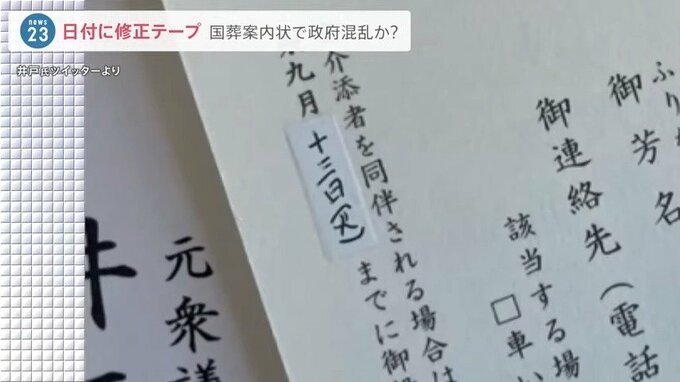 news
23
日付に修正テープ 国葬案内状で政府混乱か?
井戸氏ツイッターより
ふり
御芳名
御連絡先(電話
該当する場
□車い
介添者を同伴される場合は
九月十三日(火)までに御
元衆議
井